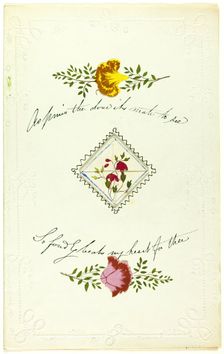 As pants the dove its mate to see
So fondly beats my heart for thee